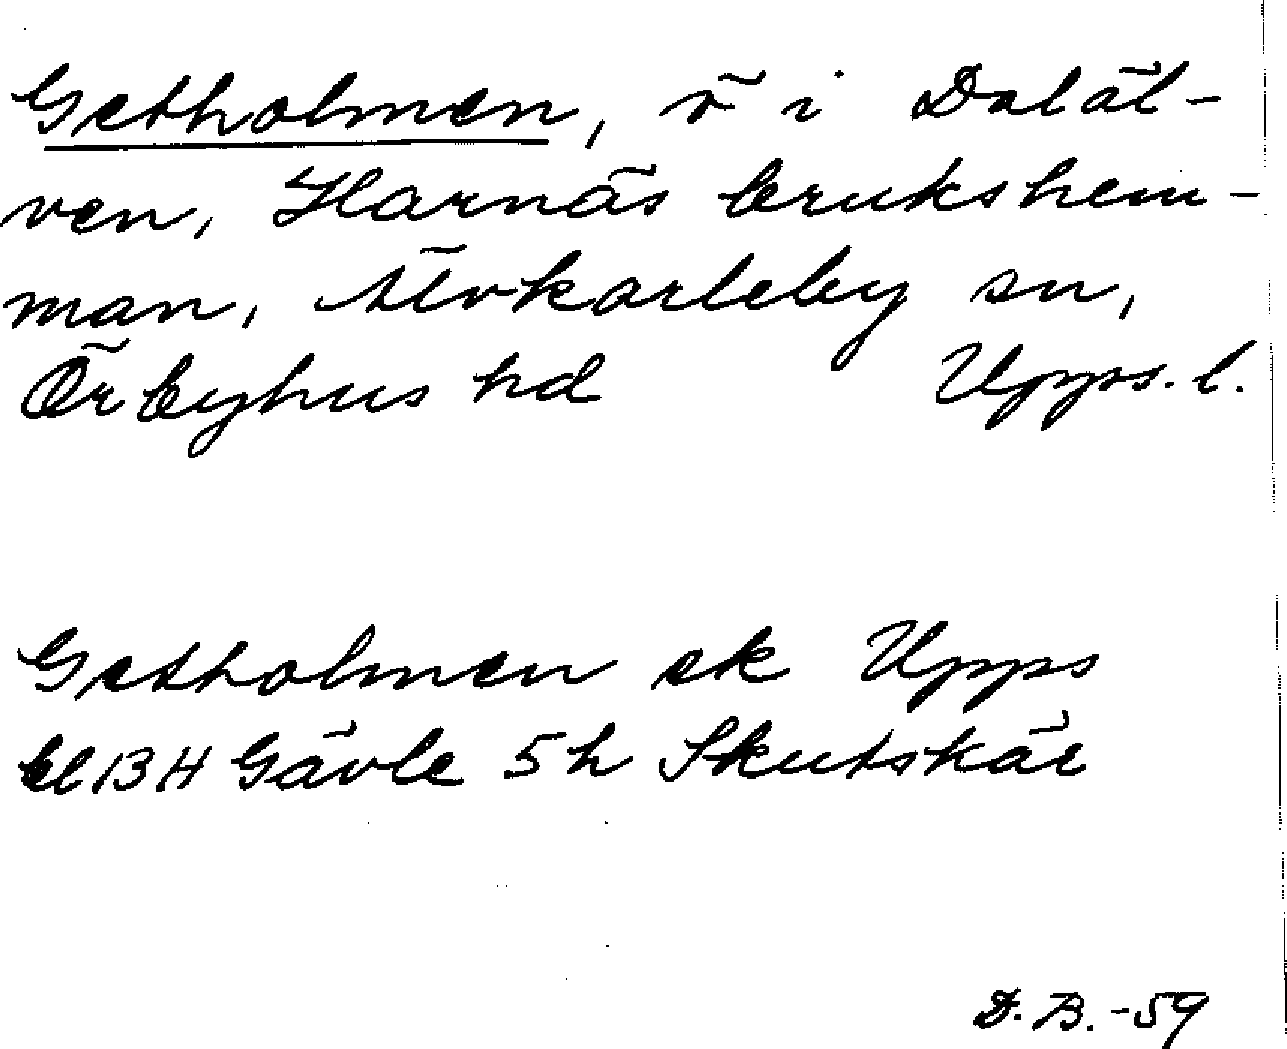 Getholmen, ö i Daläl-
ven, Harnäs brukshem-
man, Älvkarleby sn,
Örbyhus hd Upps. l.
Getholmen ek Upps
bl 13 H Gävle 5 h Skutskär
D. B. -59